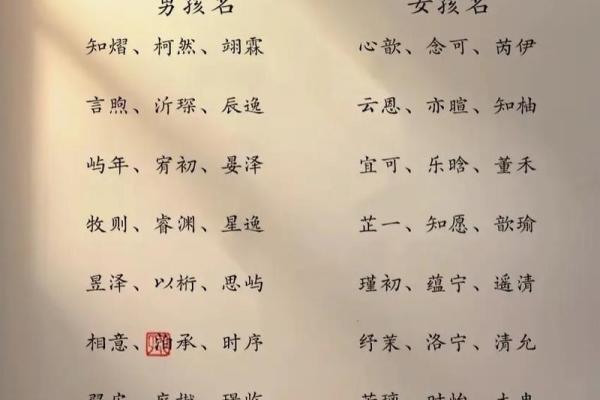 男孩名 女孩名
知熠、柯然、翊霖 心歆、念可、芮伊
言煦、沂琛、辰逸 云恩、亦暄、知柚
屿年、宥初、晏泽 宜可、乐晗、董禾
牧则、睿渊、星逸 芷一、知愿、歆瑜
昱泽、以桁、思屿 瑾初、蕴宁、遥清
相意、泊承、时序 纾茉、洛宁、清允